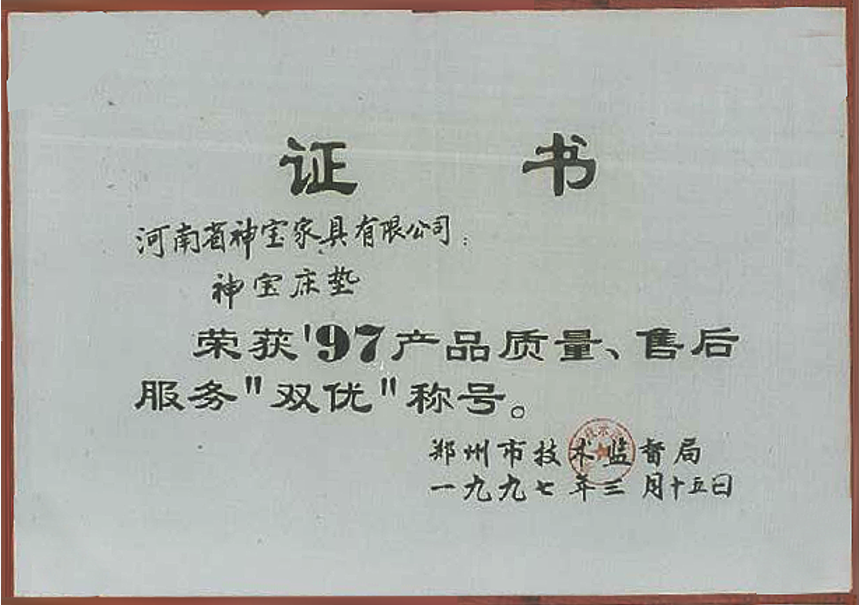 证 书
河南省神宝家具有限公司：
神宝床垫
荣获'97产品质量、售后
服务"双优"称号。
郑州市技术监督局
一九九七年三月十五日